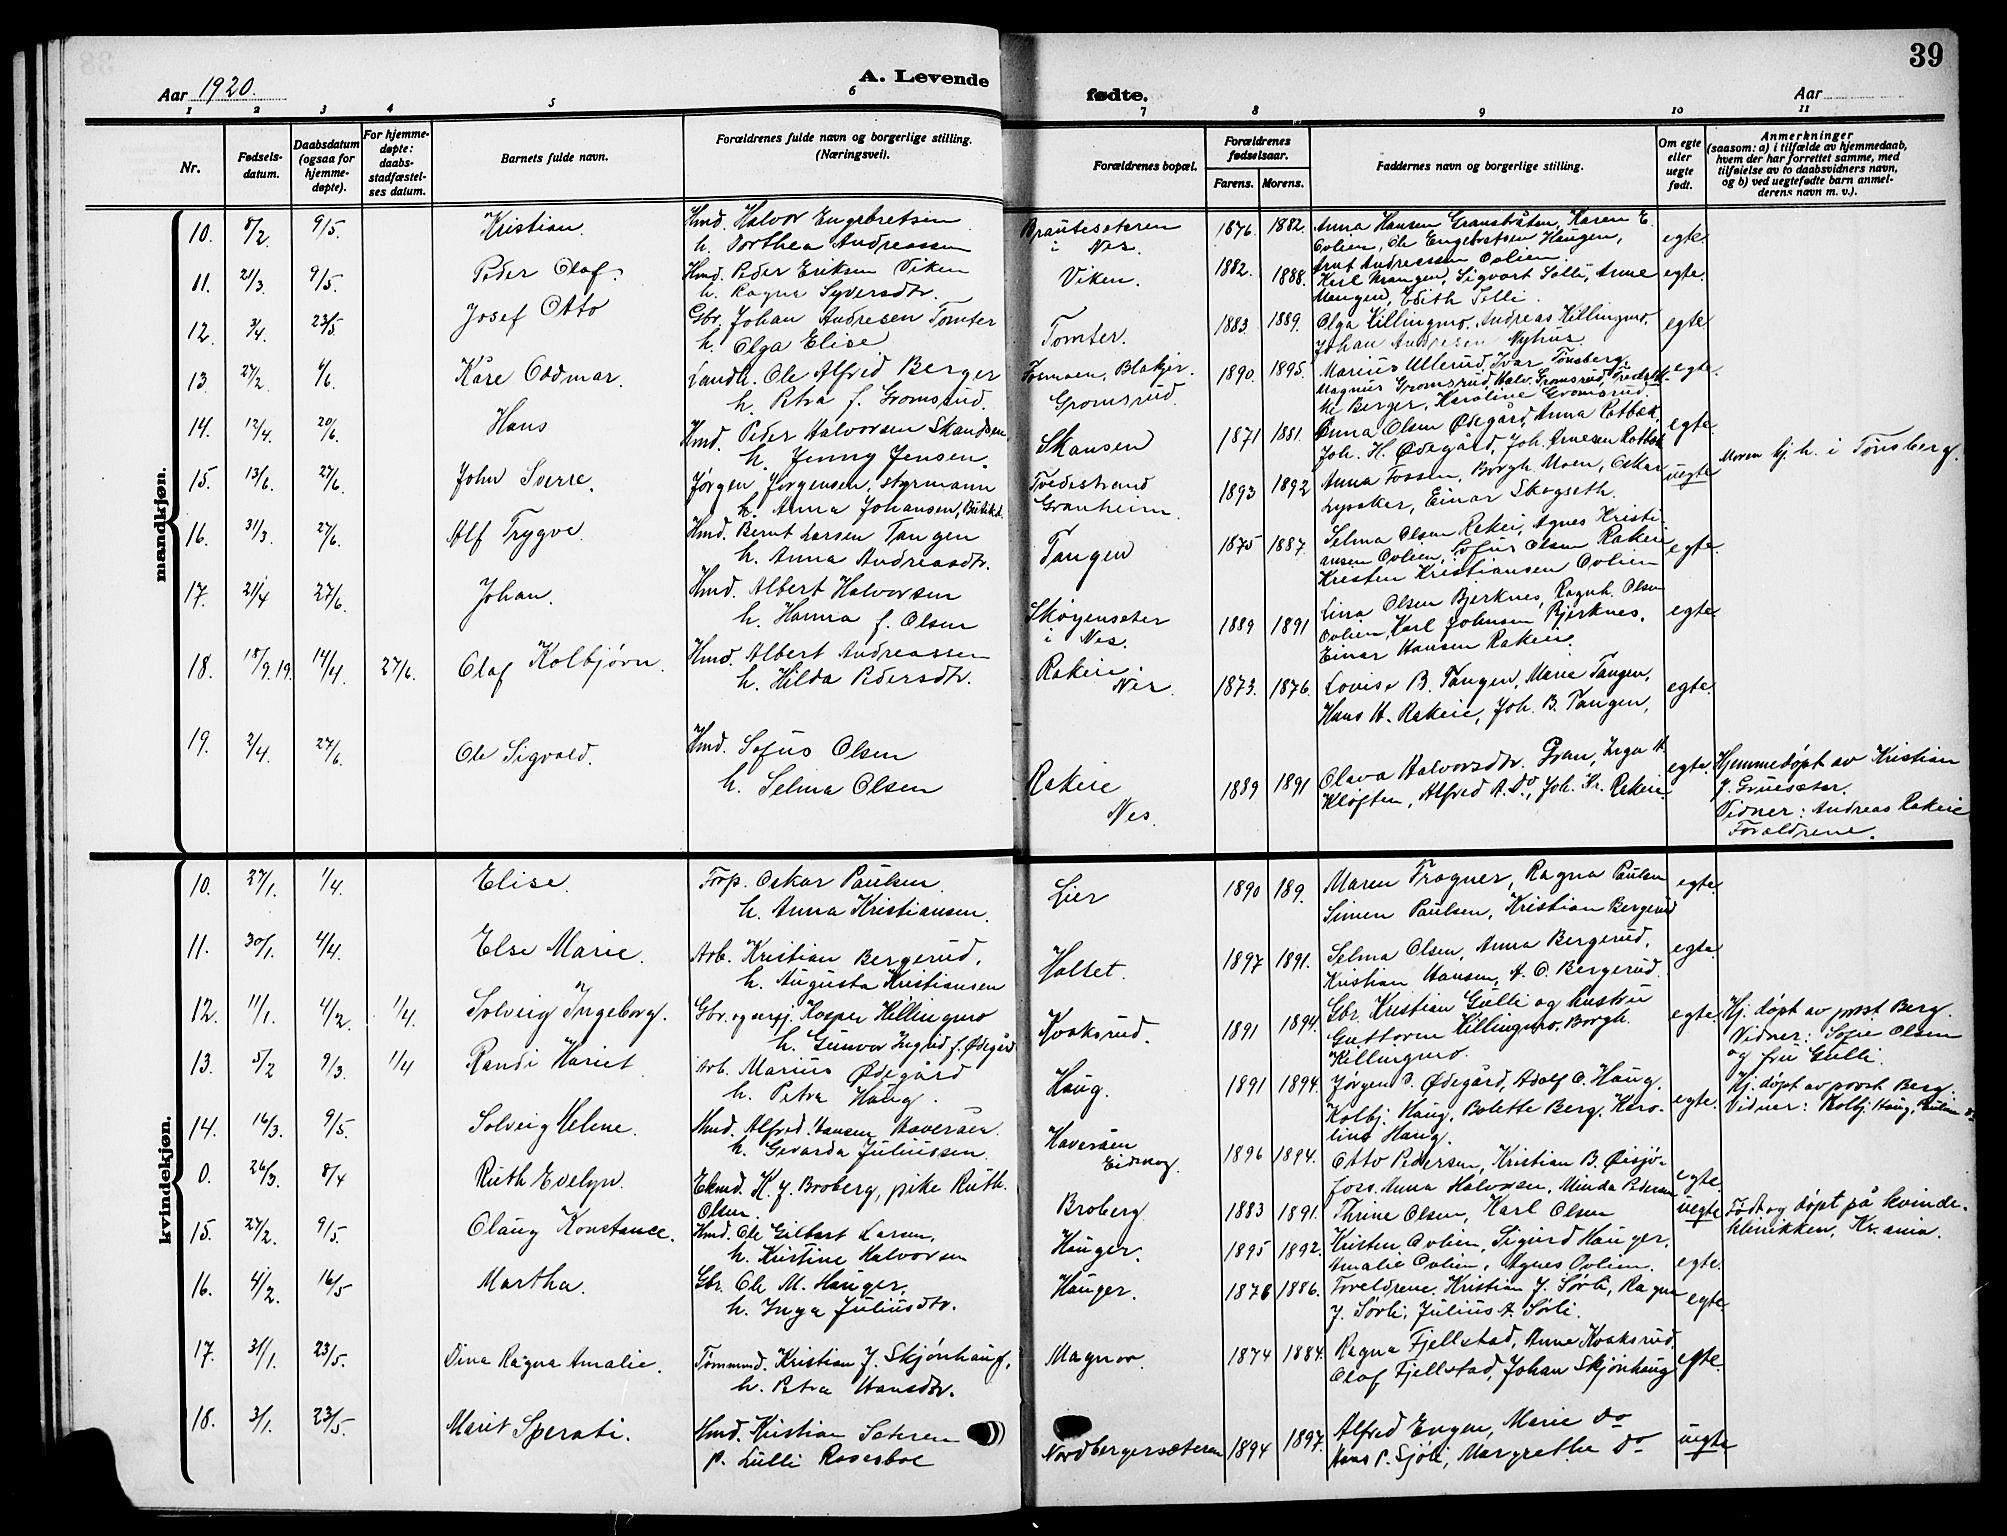 39
Aar 1920.
A. Levende
fødte.
Aar
1 2 3 4 5 6 7 8 9 10 11
Nr.
Fødsels-
datum.
Daabsdatum
(ogsaa for
hjemme-
døpte).
For hjemme-
døpte:
daabs-
stadfæstel-
ses datum.
Barnets fulde navn.
Forældrenes fulde navn og borgerlige stilling.
(Næringsvei).
Forældrenes bopæl.
Forældrenes
fødselsaar.
Farens. Morens.
Faddernes navn og borgerlige stilling.
Om egte
eller
uegte
født.
Anmerkninger
(saasom: a) i tilfælde av hjemmedaab,
hvem der har forrettet samme, med
tilføielse av to daabsvidners navn,
og b) ved uegtefødte barn anmel-
derens navn m. v.).
mandkjøn.
10. 8/2. 9/5. Kristian. Hmd. Halvor Engebretsen
h. Dorthea Andreassen
Brautesæteren
i Nes.
1876. 1882.
Anna Hansen Granstråten, Karen E.
Ovlien, Ole Engebretsen Haugen,
Arnt Andreassen Ovlien.
egte.
11. 21/3. 9/5. Peder Olaf. Hmd. Peder Eriksen Viken
h. Ragna Syversdtr.
Viken. 1882. 1888.
Karl Mangen, Sigvart Solli, Anne
Mangen, Edith Solli.
egte.
12. 3/4. 23/5. Josef Otto Gbr. Johan Andresen Tomter
h. Olga Elise
Tomter. 1883. 1889.
Olga Killingmo, Andreas Killingmo,
Johan Andresen Nyhus.
egte.
13. 27/2. 6/6. Kåre Oddmar. Landh. Ole Alfred Berger
h. Petra f. Gromsrud.
Blakjer.
Gromsrud.
1890. 1895.
Marius Ullerud, Ivar Tønsberg,
Magnus Gromsrud, Halv. Gromsrud,
Berger, Karoline Gromsrud.
egte.
14. 12/4. 20/6. Hans Hmd. Peder Halvorsen Skandsen,
h. Jenny Jensen.
Skansen 1871 1881.
Anna Olsen Ødegård, Anna Rotbæk,
Joh. H. Ødegård, Joh. Arnesen Rotbæk
egte.
15. 13/6. 27/6. John Sverre. Jørgen Jørgensen, styrmann
h. Anna Johansen,
Tvedestrand
Granheim.
1893 1892
Anna Fossen, Borgh. Moen, Oskar
Lysaker, Einar Skogseth.
uegte
Moren hj. h. i Tønsberg.
16. 31/3. 27/6. Alf Trygve. Hmd. Bernt Larsen Tangen
h. Anna Andreasdtr.
Tangen 1875 1887.
Selma Olsen Rakei, Agnes Kristi-
ansen Ovlien, Sofus Olsen Rakeie
Kresten Kristiansen Ovlien
egte.
17. 21/4 27/6. Johan. Hmd. Albert Halvorsen
h. Hanna f. Olsen
Skogensæter
i Nes.
1889 1891
Lina Olsen Bjerknes, Ragnh. Olsen
Ovlien, Karl Johnsen Bjerknes,
Einar Hansen Rakeie.
egte.
18. 18/9.19. 14/4. 27/6. Olaf Kolbjørn. Hmd. Albert Andreassen
h. Hilda Pedersdtr.
Rakeie.
Nes.
1873. 1876.
Lovise B. Tangen, Marie Tangen,
Hans H. Rakeie, Joh. B. Tangen,
egte.
19. 2/4. 27/6. Ole Sigvald. Hmd. Sofus Olsen
h. Selma Olsen
Rakeie
Nes.
1889 1891
Olava Halvorsdtr. Gran, Inga H.
Kløften, Alfred A. Do, Joh. Kr. Rakeie.
egte.
Hjemmedøpt av Kristian
J. Gruesæter.
Vidner: Andreas Rakeie
Forældrene.
kvindekjøn.
10. 27/1. 1/4. Elise. Forp. Oskar Paulsen.
h. Anna Kristiansen.
Lier 1890 189.
Maren Trogner, Ragna Paulsen
Simen Paulsen, Kristian Bergerud
egte.
11. 30/1. 4/4. Else Marie. Arb. Kristian Bergerud,
h. Augusta Kristiansen
Holtet. 1897 1891.
Selma Olsen, Anna Bergerud,
Kristian Hansen, A. O. Bergerud.
egte.
12. 11/1. 4/2. 1/4. Solveig Ingeborg. Gbr. og Kasper Killingmo
h. Gunvor Ingrid f. Ødegård
Kvaksrud. 1891 1894.
Gbr. Kristian Gulli og hustru
Guttorm Killingmo, Borgh.
Killingmo.
egte.
Hj. døpt av prst. Berg.
Vidner: Sofie Olsen
og fru Gulli.
13. 5/2 9/3. 1/4 Randi Hariet Arb. Marius Ødegård
h. Petra Haug.
Haug. 1891 1894.
Jørgen O. Ødegård, Adolf O. Haug,
Kolbj. Haug, Bolette Berg, Karo-
line Haug.
egte.
Hj. døpt av prost Berg.
Vidner: Kolbj. Haug, Pauline Do
14. 16/3. 9/5. Solveig Helene. Hmd. Alfred Hansen Haveråen
h. Gevarda Juliussen.
Haveråen
Eidskog.
1896 1894.
Otto Pedersen, Kristian B. Øisjø-
foss. Anna Halvorsen, Minda Pedersen
egte.
0. 26/3. 8/4 Ruth Evelyn. Ekmd. K. J. Broberg, pike Ruth
Olsen.
Broberg 1883 1891.
Thrine Olsen, Karl Olsen
uegte
Født og døpt på kvinde-
klinikken, Kr.ania.
15. 27/2. 9/5. Olaug Konstance. Hmd. Ole Gilbert Larsen,
h. Kristine Halvorsen
Hauger. 1895 1892.
Kristen Ovlien, Sigurd Hauger,
Amalie Ovlien, Agnes Ovlien.
egte.
16. 4/2. 16/5 Martha. Gbr. Ole M. Hauger,
h. Inga Juliusdtr.
Hauger. 1876 1886.
Foreldrene, Kristian J. Sørli, Ragna
J. Sørli, Julius A. Sørli.
egte
17. 31/1. 23/5. Dina Ragna Amalie. Tømmmd. Kristian J. Skjønhaug,
h. Petra Hansdtr.
Magnor. 1874 1884.
Ragna Fjellstad, Anne Kvaksrud,
Olaf Fjellstad, Johan Skjønhaug
egte.
18. 3/1. 23/5. Marit Sperati. Hmd. Kristian Sæteren
p. Lulli Rosesboe
Nordbergersæteren 1894 1897.
Alfred Engen, Marie Do
Hans P. Sjøli, Margrethe Do
uegte